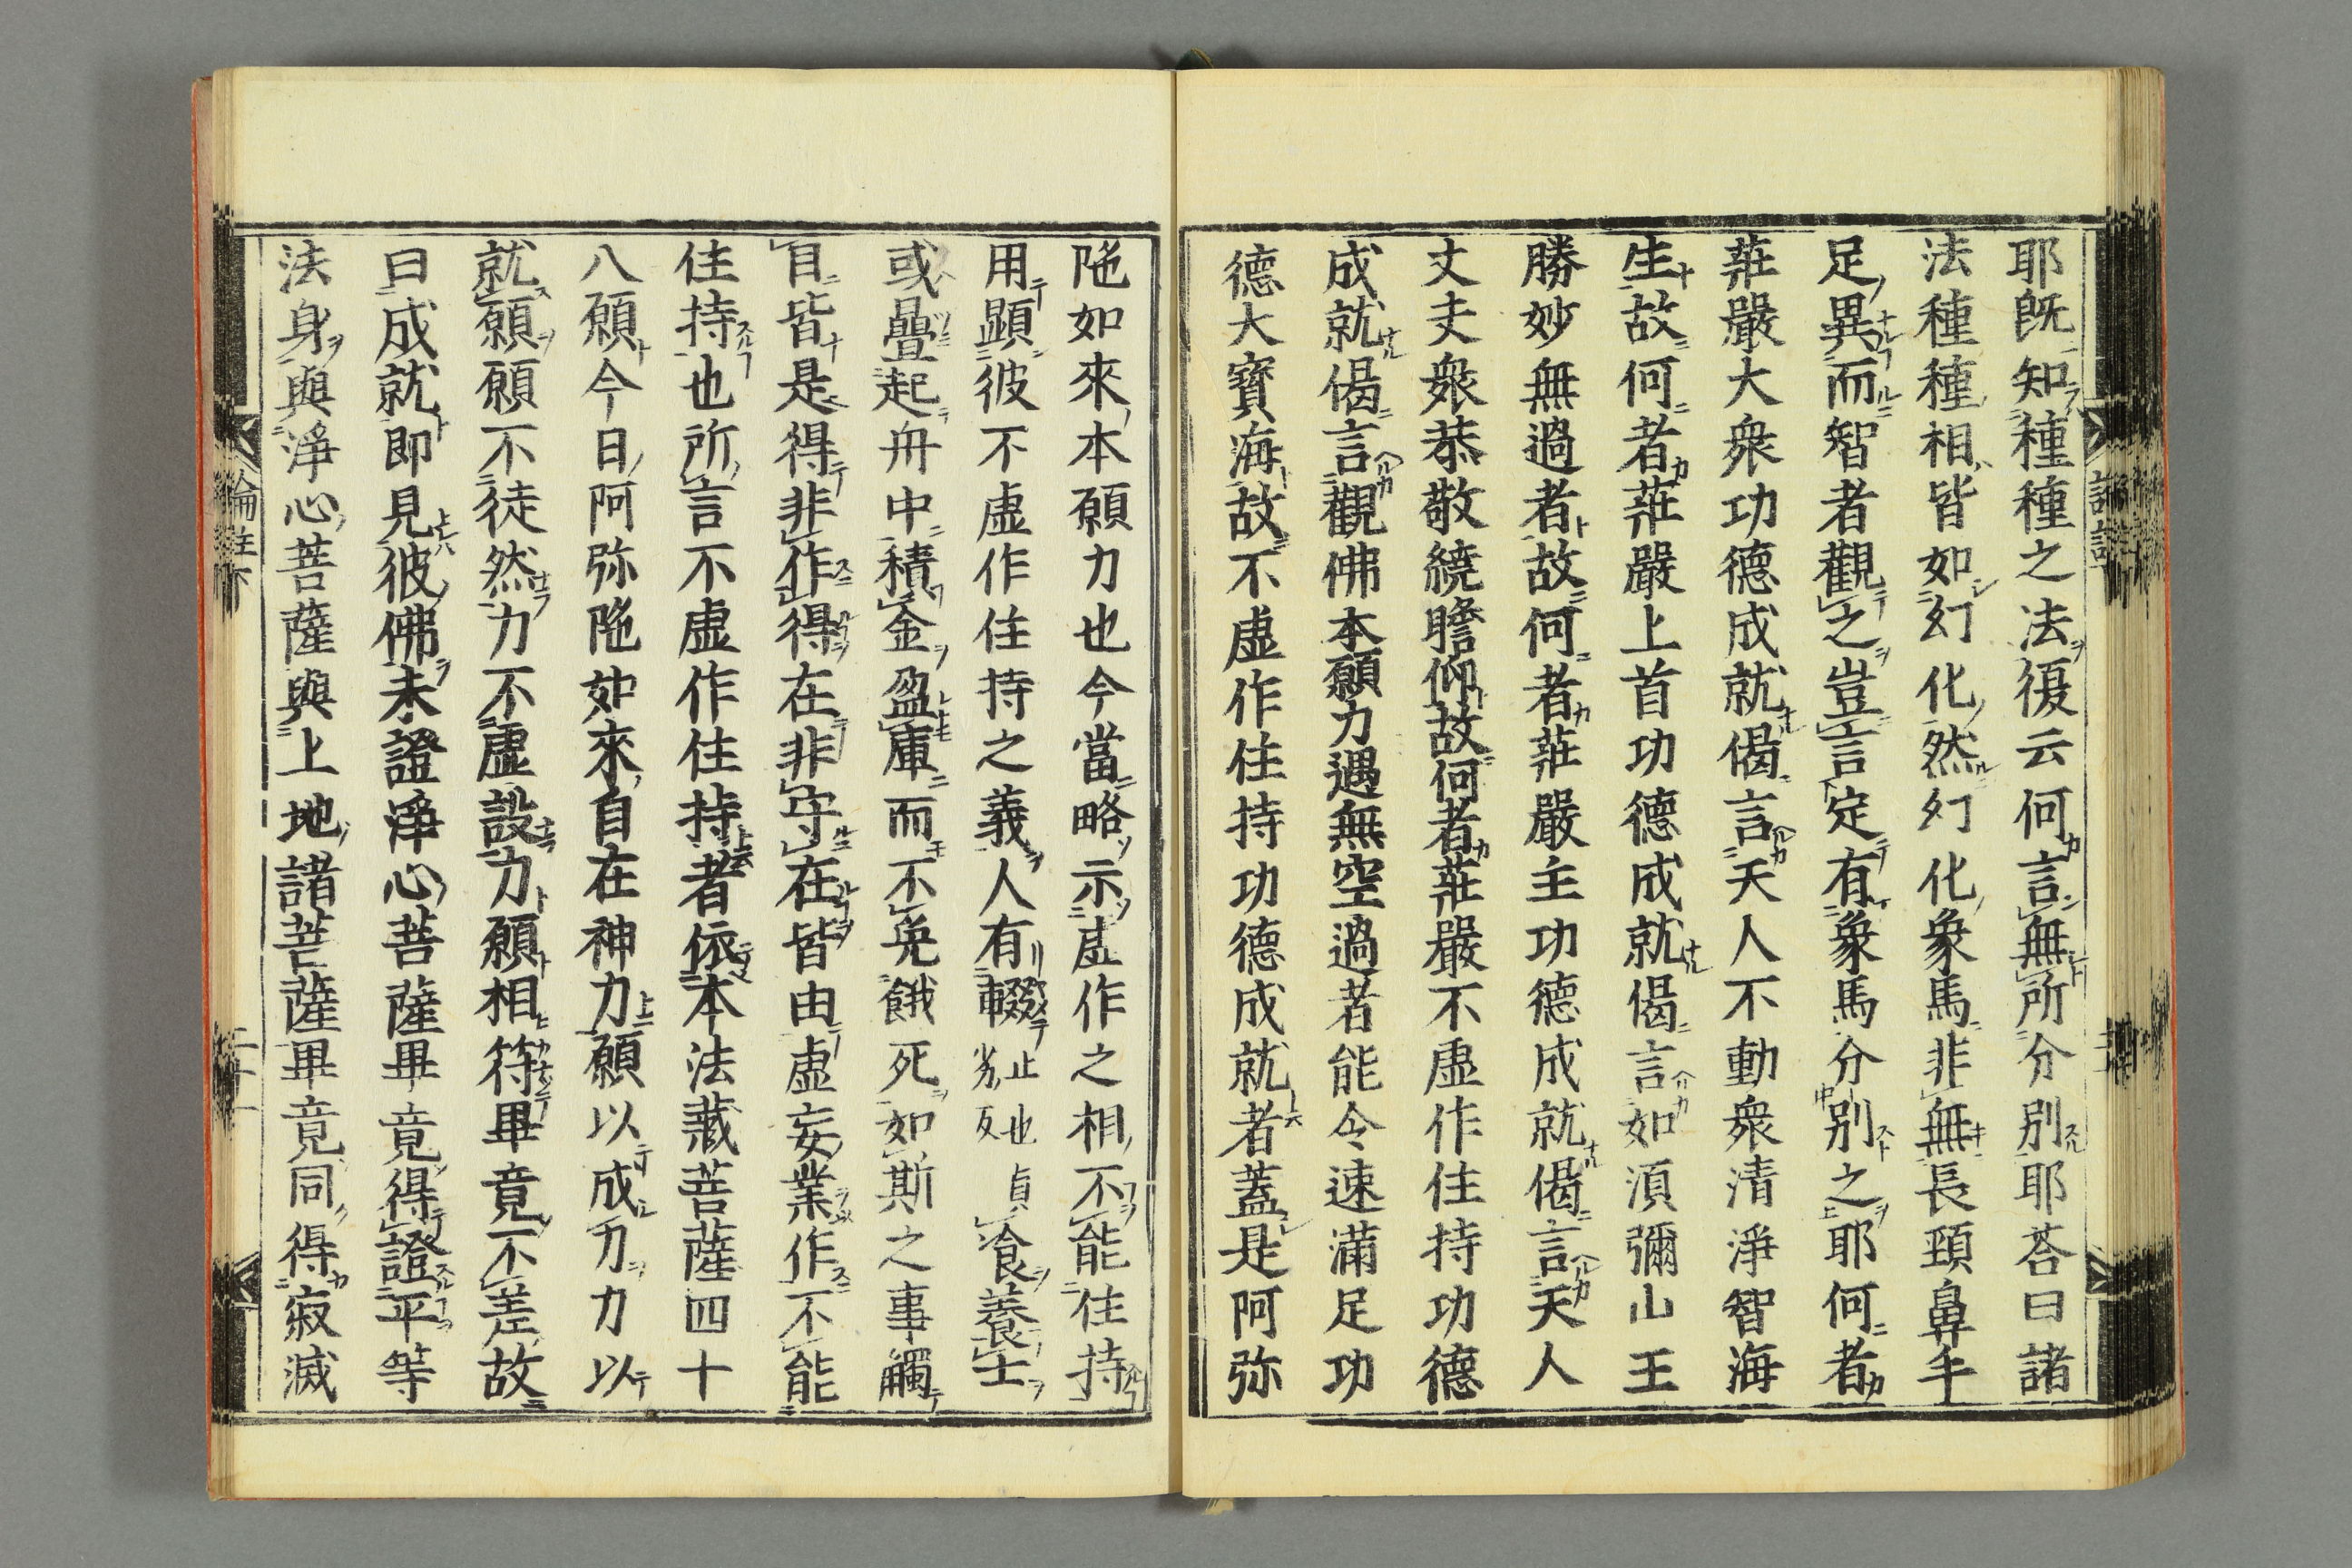 耶既知種種之法復云何言無所分別耶荅曰諸
法種種相皆如幻化然幻化象馬非無長頸鼻手
足異而智者觀之豈言定有象馬分別之耶何者
莊嚴大衆功德成就偈言天人不動衆清淨智海
生故何者莊嚴上首功德成就偈言如湏彌山王
勝妙無過者故何者莊嚴主功德成就偈言天人
丈夫衆恭敬繞瞻仰故何者莊嚴不虛作住持功德
成就偈言觀佛本願力遇無空過者能令速滿足功
德大寶海故不虛作住持功德成就者蓋是阿弥
陁如來本願力也今當略示虛作之相不能住持
用顕彼不虛作住持之義人有輟止也劣反貞飡養士
或疊起舟中積金盈庫而不免餓死如斯之事觸
目皆是得非作得在非守在皆由虛妄業作不能
住持也所言不虛作住持者依本法蔵菩薩四十
八願今日阿弥陁如來自在神力願以成力力以
就願願不徒然力不虛設力願相符畢竟不差故
曰成就即見彼佛未證淨心菩薩畢竟得證平等
法身與淨心菩薩與上地諸菩薩畢竟同得寂滅
論註下